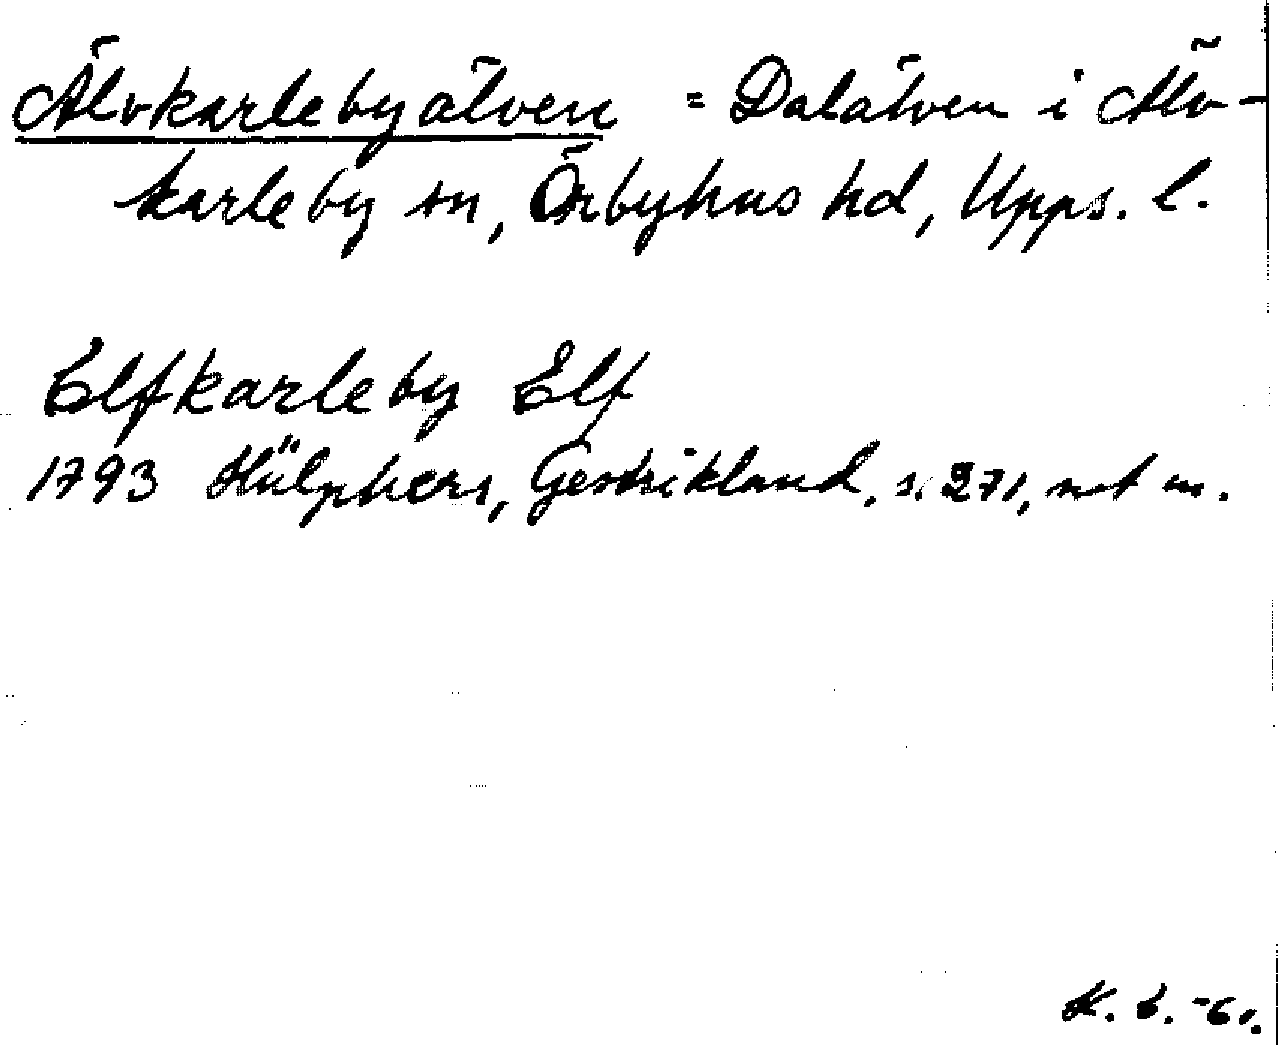 Älvkarlebyälven = Dalälven i Älv-
karleby sn, Örbyhus hd, Upps. l.
Elfkarleby Elf
1793 Hülphers, Gestrikland, s. 271, not m.
K. b. -61.